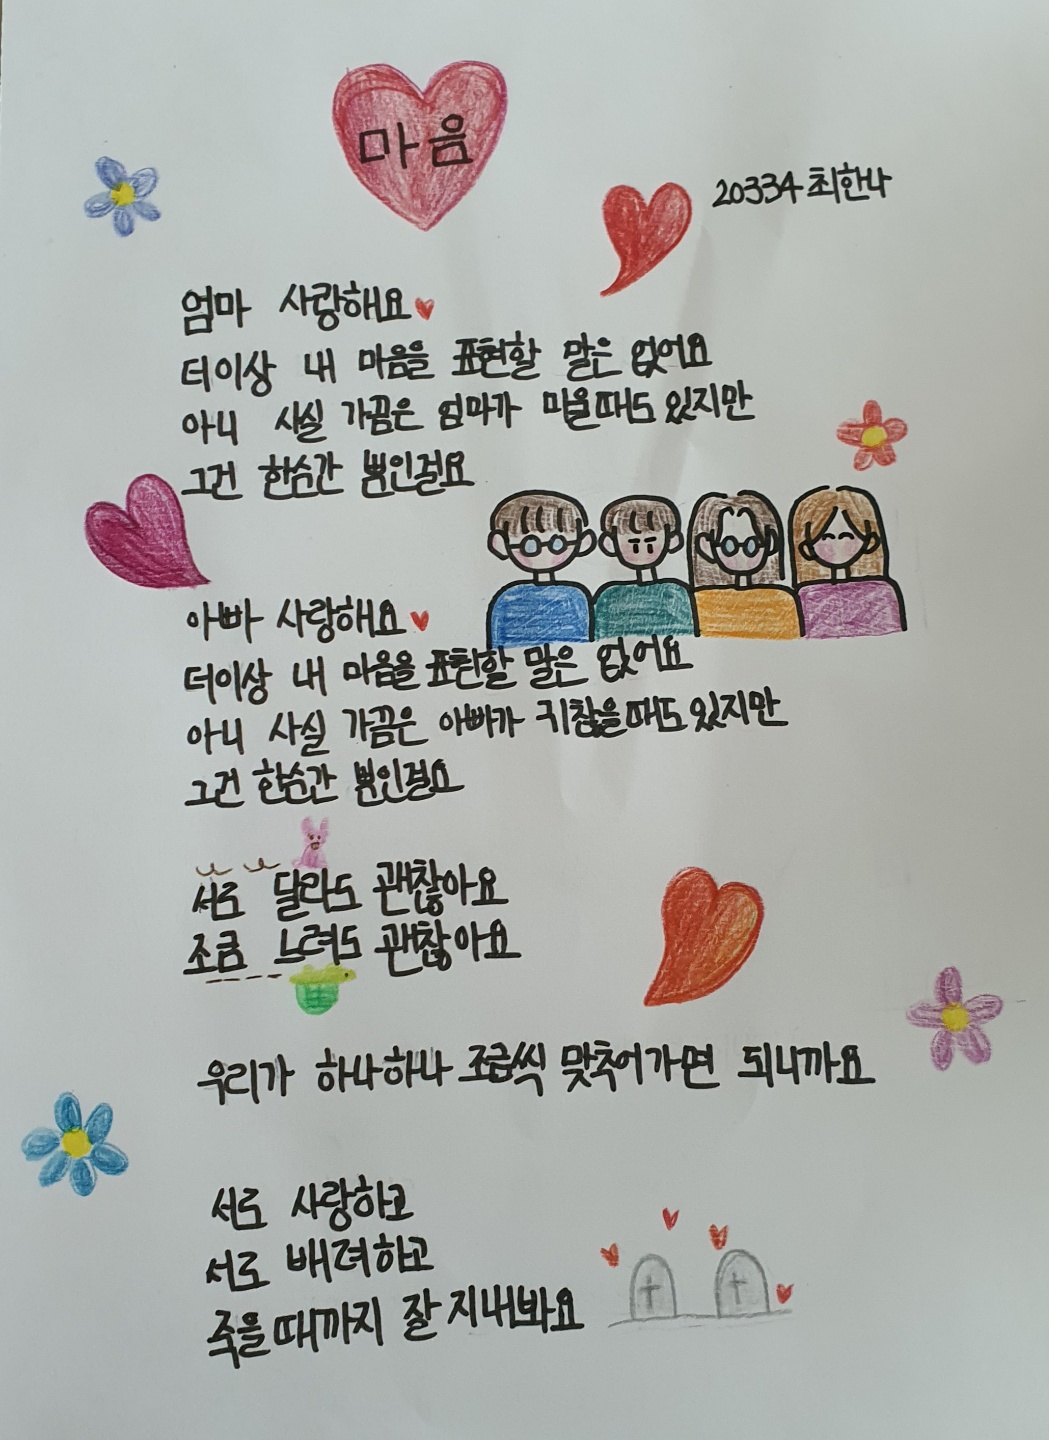 마음
20334 최한나
엄마 사랑해요
더이상 내 마음을 표현할 말은 없어요
아니 사실 가끔은 엄마가 미울때도 있지만
그건 한순간 뿐인걸요
아빠 사랑해요
더이상 내 마음을 표현할 말은 없어요
아니 사실 가끔은 아빠가 귀찮을때도 있지만
그건 한순간 뿐인걸요
서로 달라도 괜찮아요
조금 느려도 괜찮아요
우리가 하나하나 조금씩 맞추어가면 되니까요
서로 사랑하고
서로 배려하고
죽을때까지 잘 지내봐요